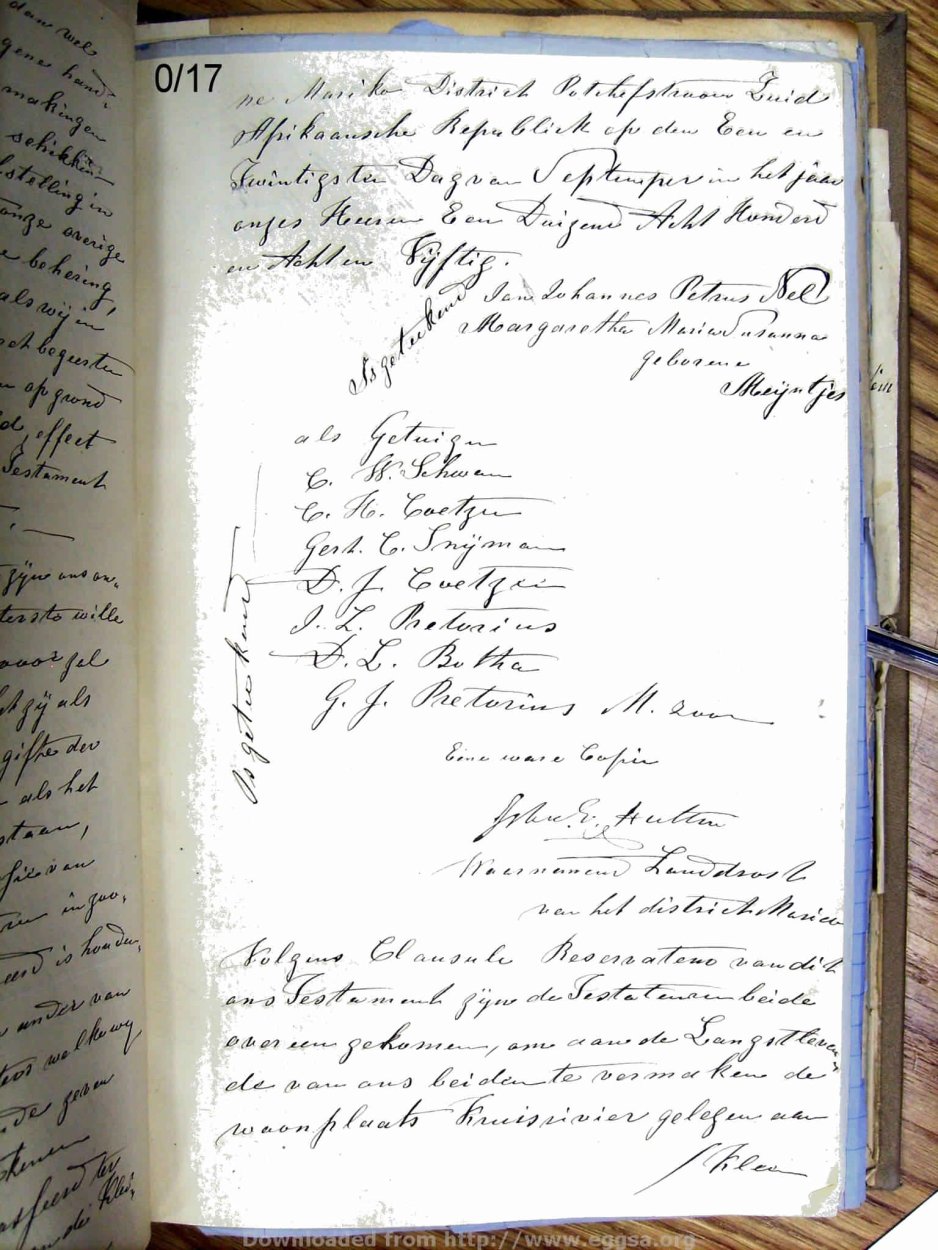 0/17
ne Mariko District Potchefstroom Zuid
Afrikaansche Republiek op den Een en
Twintigsten Dag van Septemper in het jaar
onzes Heeren Een Duizend Acht Honderd
en Acht en Vijftig.
Is geteekend
Jan Johannes Petrus Nel
Margaretha Maria Susanna
geborene
Meijntjes
als Getuigen
C. W. Schwan
C. H. Coetzee
Gert. C. Snijman
D. J. Coetzee
J. L. Pretorius
D. L. Botha
G. J. Pretorius M. zoon
Is geteekend
Eene ware Copie
John E. Hutton
Waarnemend Landdrost
van het district Marico
Volgens Clausule Reservatoir van dit
ons Testament zijn de Testateuren beide
over een gekomen, om aan de Langstleven
de van ons beiden te vermaken de
woonplaats Kruisrivier gelegen aan
Klein
dan wel
gene hand
makingen
schikkin
stelling in
onze overige
behering,
als wij in
begeerten
op grond
effect
Testament
wille
zij als
gifte der
als het
staan,
van
in zoo
eerd is
ander van
welke wij
geven
de Klei
Downloaded from http://www.eggsa.org